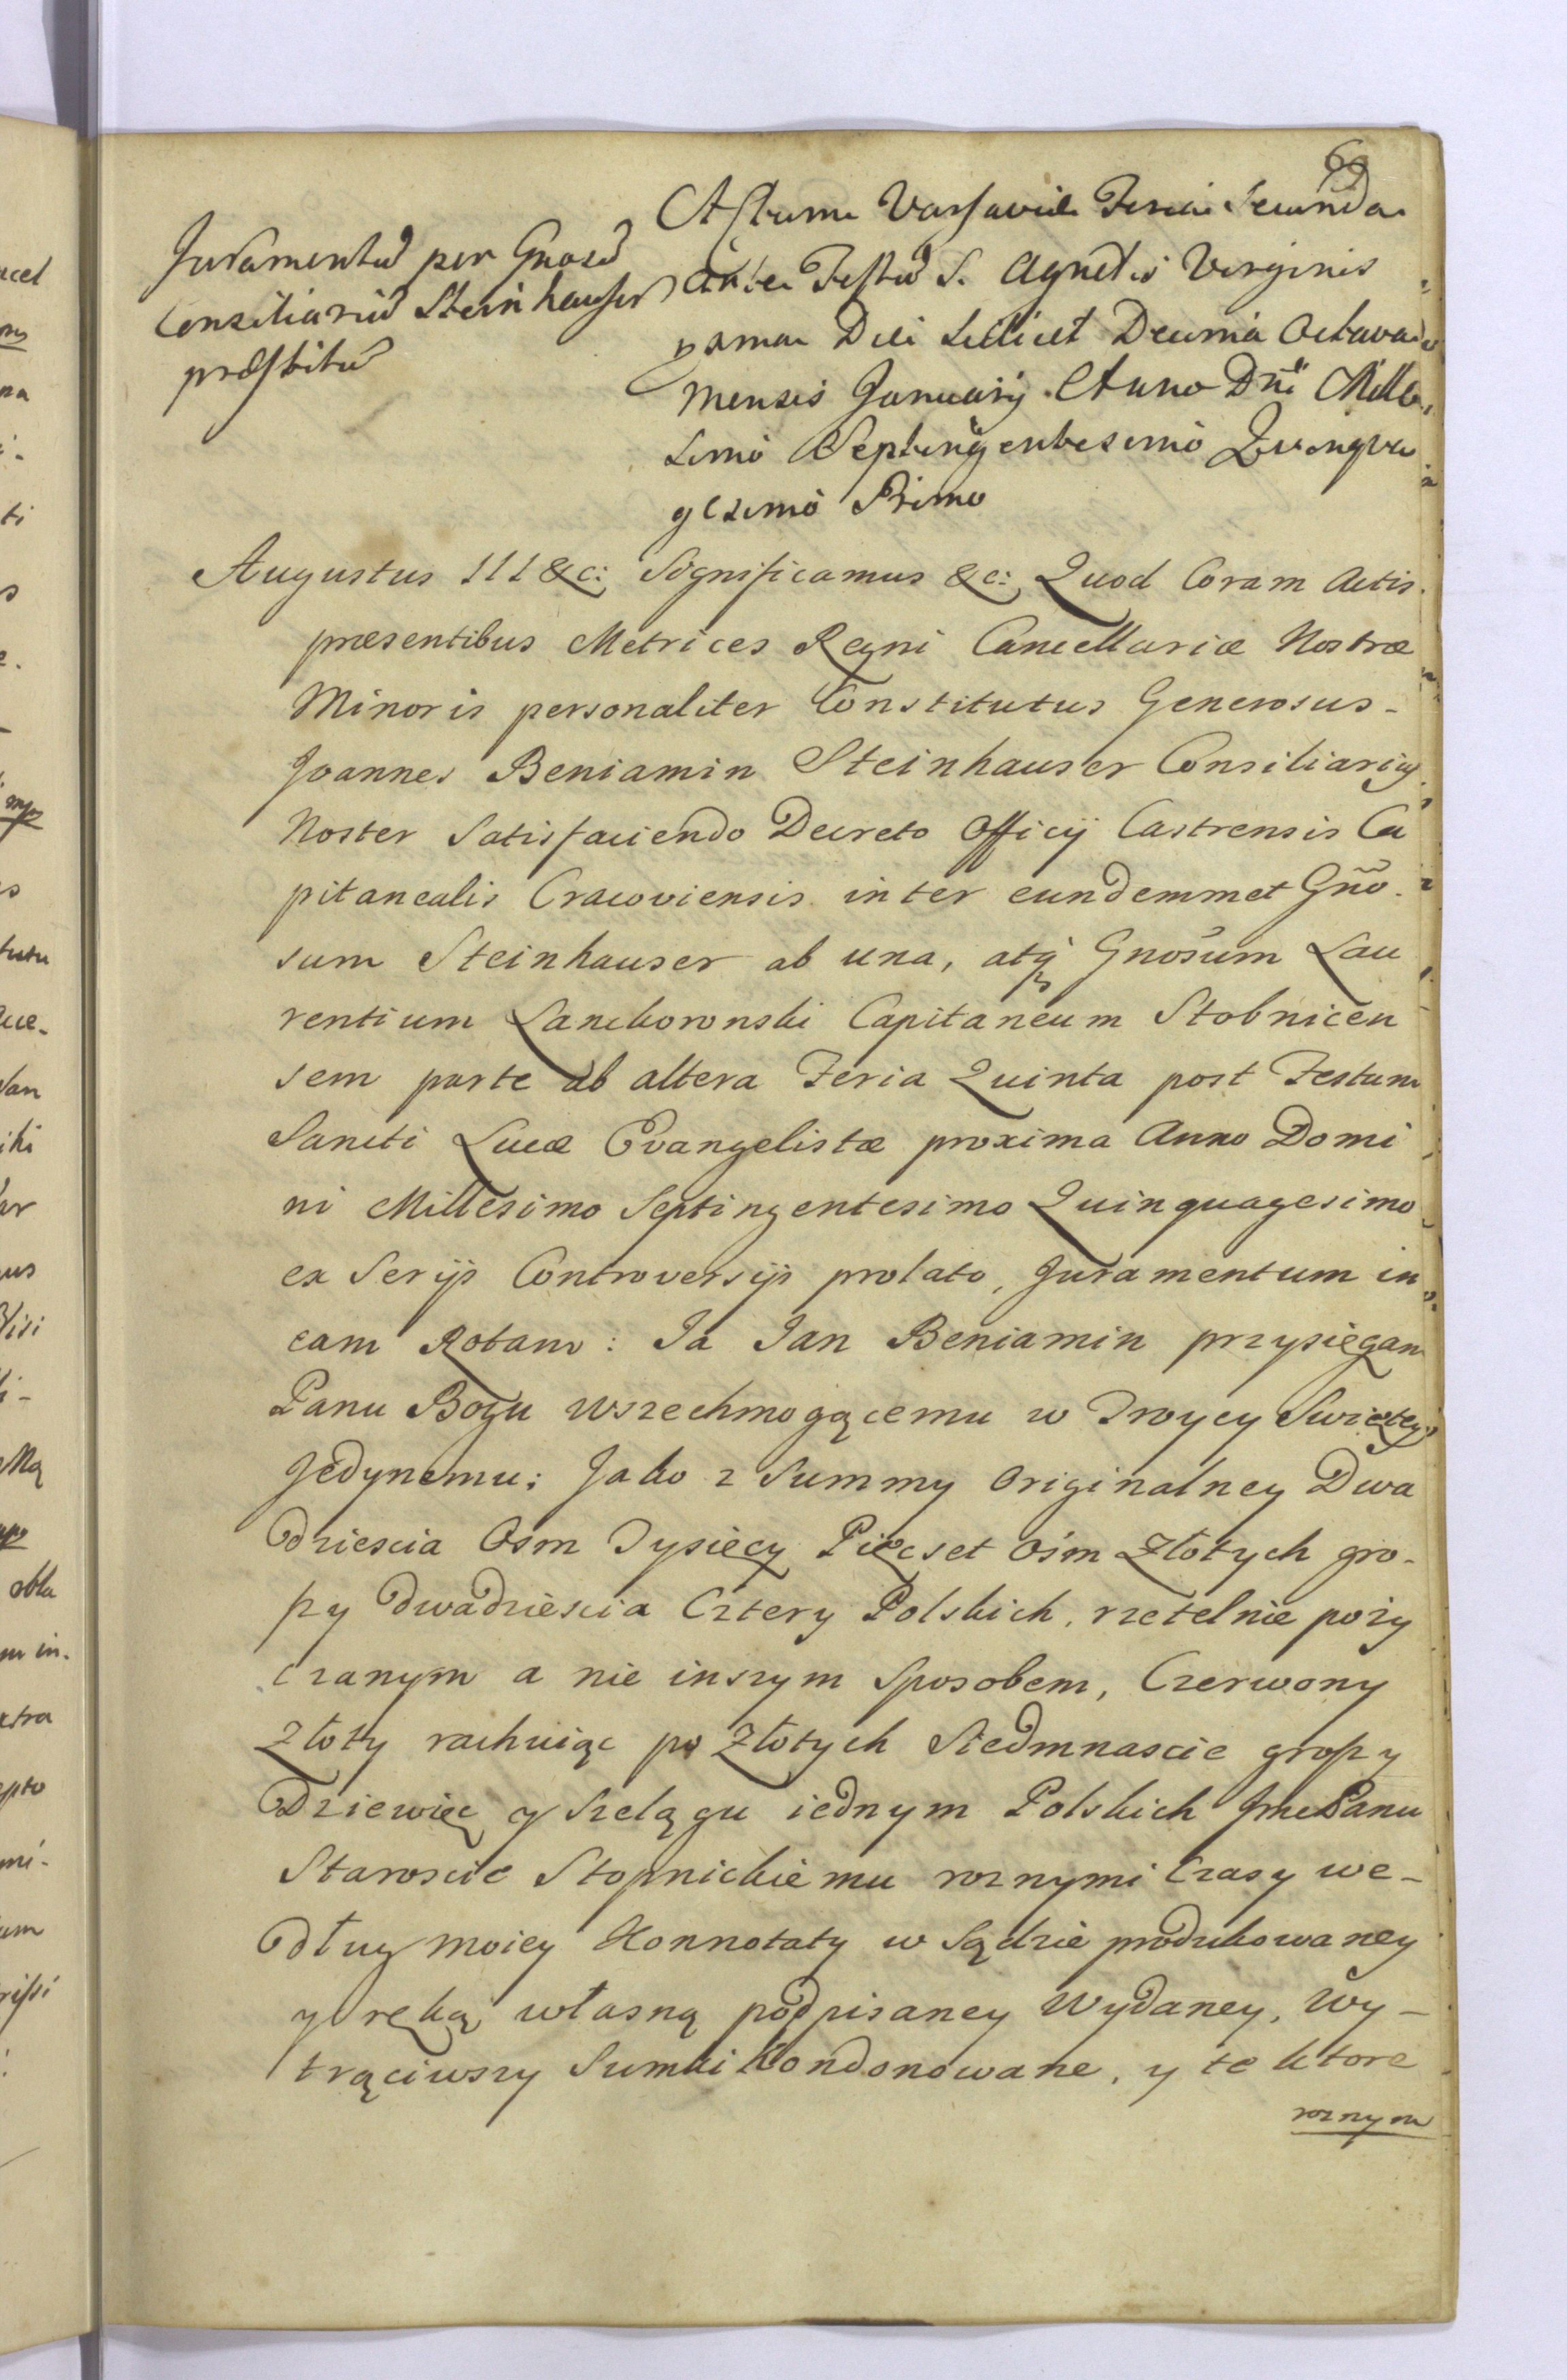 69
Juramentũ per Gnosũ
Consiliariũ Steinhauser
præstitũ
Actum Varsaviæ Feria Secunda
ante Festũ S. Agnetis Virginis
Die Scilicet Decima Octava
Mensis Januarij Anno Dñi Mille
simo Septingentesimo Quinqua
gesimo Primo
Augustus III &c: Significamus &c: Quod Coram Actis
præsentibus Metrices Regni Cancellariæ Nostræ
Minoris personaliter Constitutus Generosus-
Joannes Beniamin Steinhauser Consiliariꝰ
Noster Satisfaciendo Decreto Officij Castrensis Ca
pitanealis Cracoviensis inter eundemmet Gño
sum Steinhauser ab una, atq̃ Gnosum Lau
rentium Lanckoronski Capitaneum Stobnicen
sem parte ab altera Feria Quinta post Festum
Sancti Lucæ Evangelistæ proxima Anno Domi
ni Millesimo Septingentesimo Quinquagesimo
ex Serijs Controversijs prolato, Juramentum in
eam Rotam: Ja Jan Beniamin przysięgam
Panu Bogu Wszechmogącemu w Troycy Swiętey
Jedynemu; Jako z Summy Originalney Dwa
dziescia Osm Tysięcy Pięcset Ośm Złotych gro-
szy dwadziescia Cztery Polskich, rzetelnie poży
czanym a nie inszym Sposobem, Czerwony
Złoty rachuiąc po Złotych Siedmnascie groszy
Dziewięc y Szelągu iednym Polskich Jmć Panu
Staroscie Stopnickiemu roznymi Czasy we-
dług moiey Konnotaty w Sądzie produkowaney
y ręką własną podpisaney Wydaney, Wy-
trąciwszy Sumki Kondonowane, y te ktore
roznym